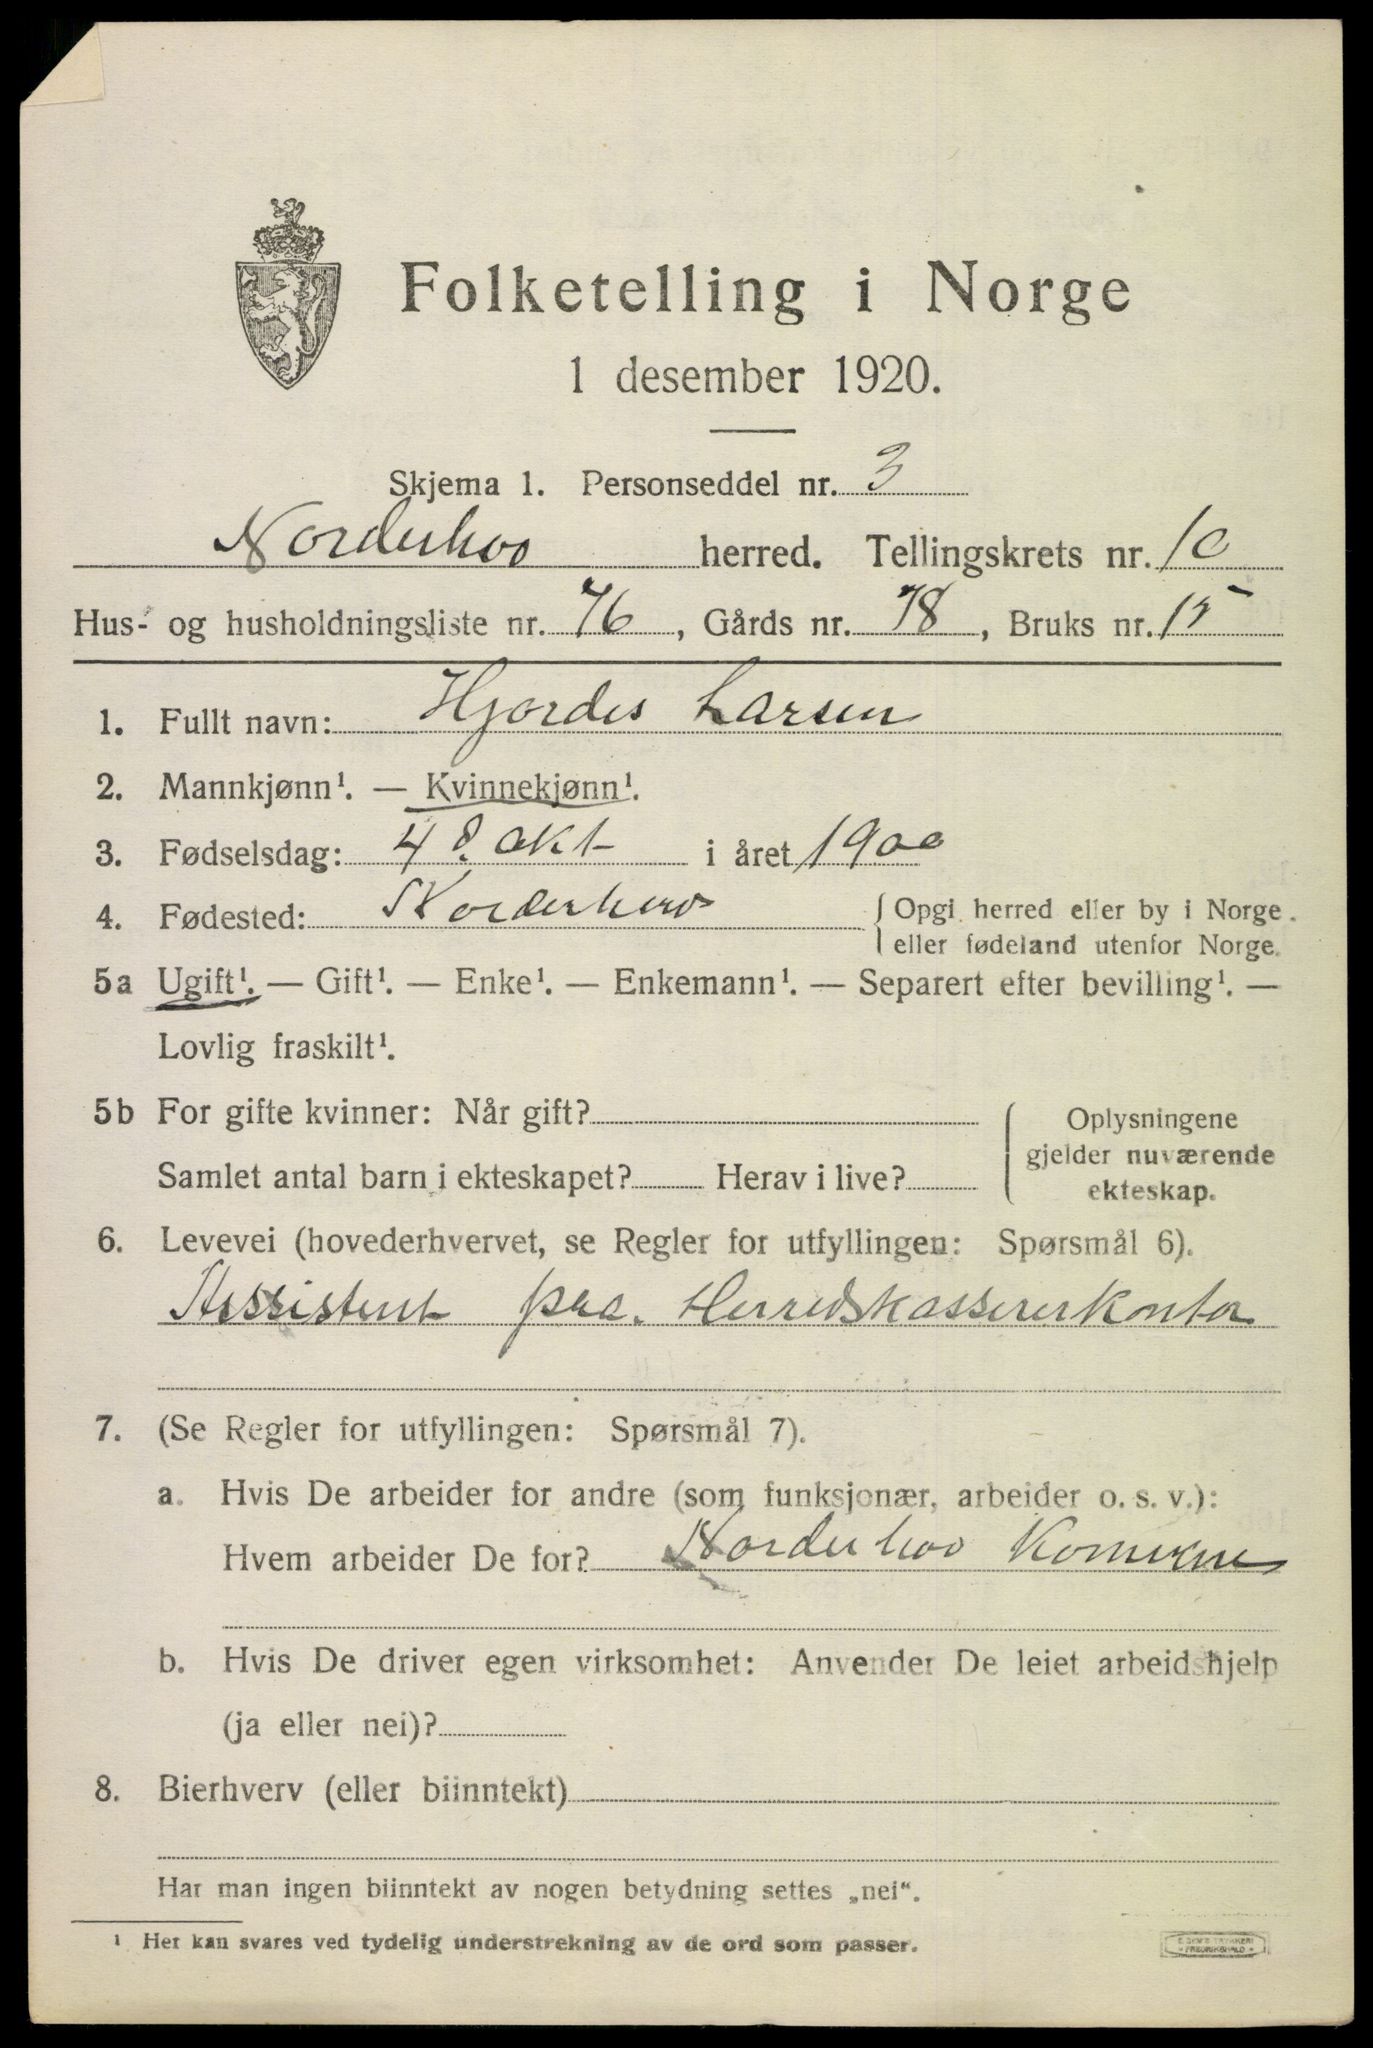 Folketelling i Norge
1 desember 1920.
Skjema 1. Personseddel nr. 3
Norderhov herred. Tellingskrets nr. 10
Hus- og husholdningsliste nr. 76, Gårds nr. 78, Bruks nr. 15
1. Fullt navn: Hjordes Larsen
2. Mannkjønn¹. — Kvinnekjønn¹.
3. Fødselsdag: 4 d. okt i året 1900
4. Fødested: Norderhov { Opgi herred eller by i Norge eller fødeland utenfor Norge.
5a Ugift¹. — Gift¹. — Enke¹. — Enkemann¹. — Separert efter bevilling¹. —
Lovlig fraskilt¹.
5b For gifte kvinner: Når gift?
Samlet antal barn i ekteskapet? Herav i live?
Oplysningene
gjelder nuværende
ekteskap.
6. Levevei (hovederhvervet, se Regler for utfyllingen: Spørsmål 6).
Assistent paa. Herredskassererkontor
7. (Se Regler for utfyllingen: Spørsmål 7).
a. Hvis De arbeider for andre (som funksjonær, arbeider o. s. v.):
Hvem arbeider De for? Norderhov Komune
b. Hvis De driver egen virksomhet: Anvender De leiet arbeidshjelp
(ja eller nei)?
8. Bierhverv (eller biinntekt)
Har man ingen biinntekt av nogen betydning settes „nei“.
¹ Her kan svares ved tydelig understrekning av de ord som passer.